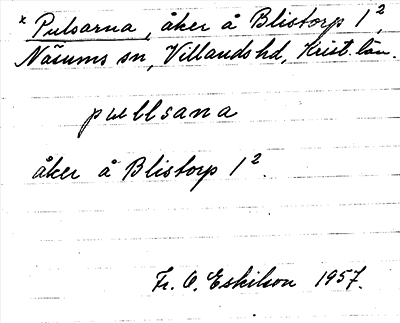 * Pulsarna, åker å Blistorp 1²,
Näsums sn, Villands hd, Krist. län.
pullsana
åker å Blistorp 1².
Fr. O. Eskilson 1957.